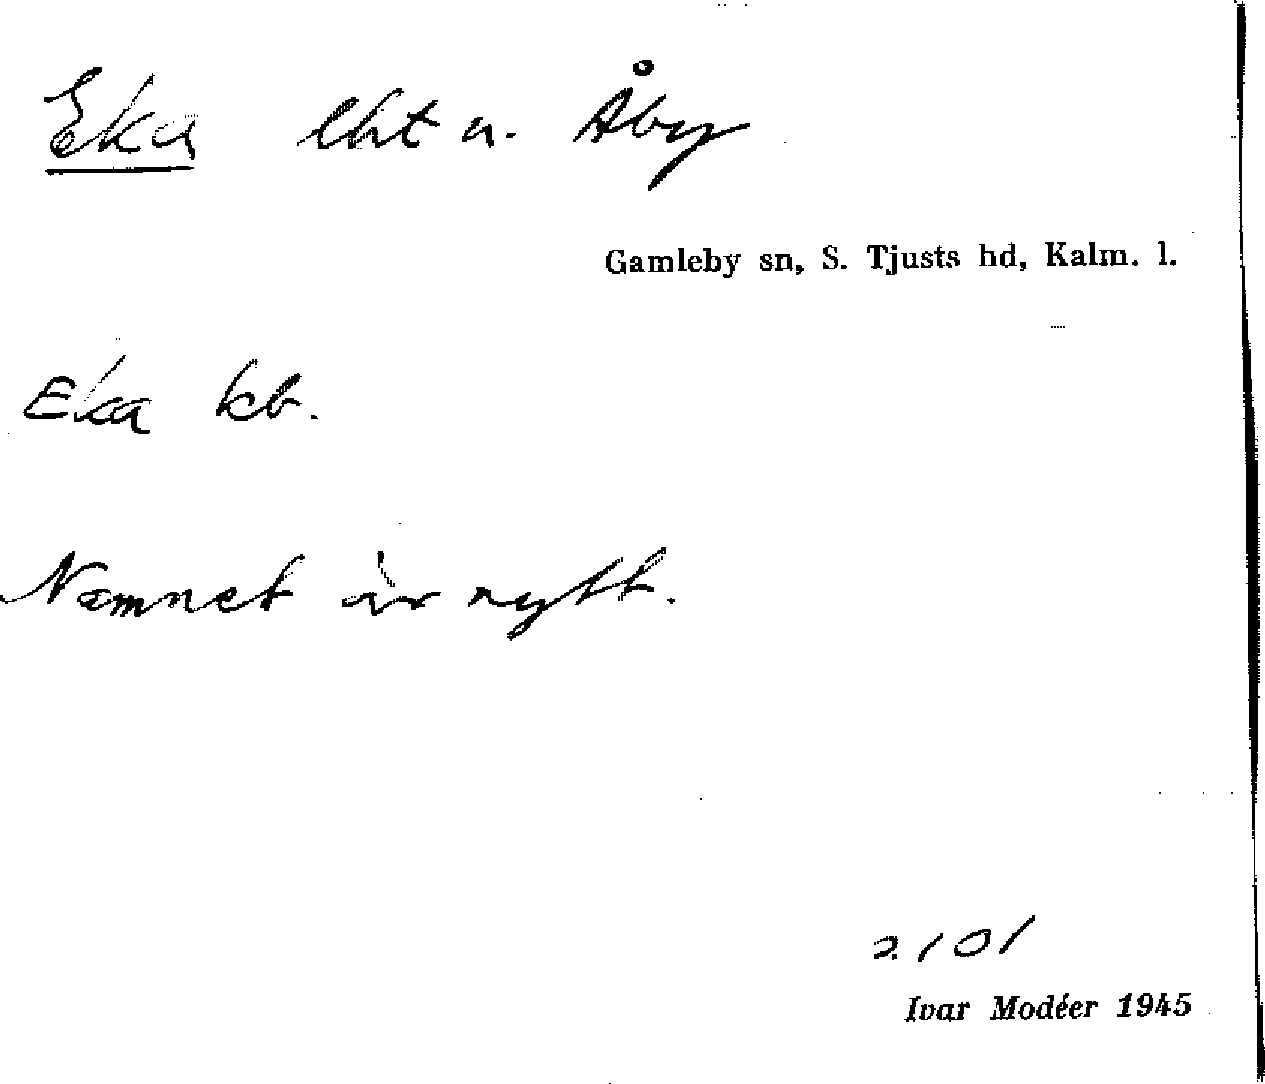 Eka lht u. Åby
Gamleby sn, S. Tjusts hd, Kalm. l.
Eka kb.
Namnet är nytt.
2101
Ivar Modéer 1945